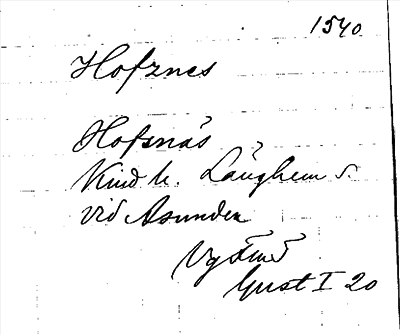 1540.
Hofznes
Hofsnäs
Kind h. Länghem s.
vid Åsunden
Gust I 20